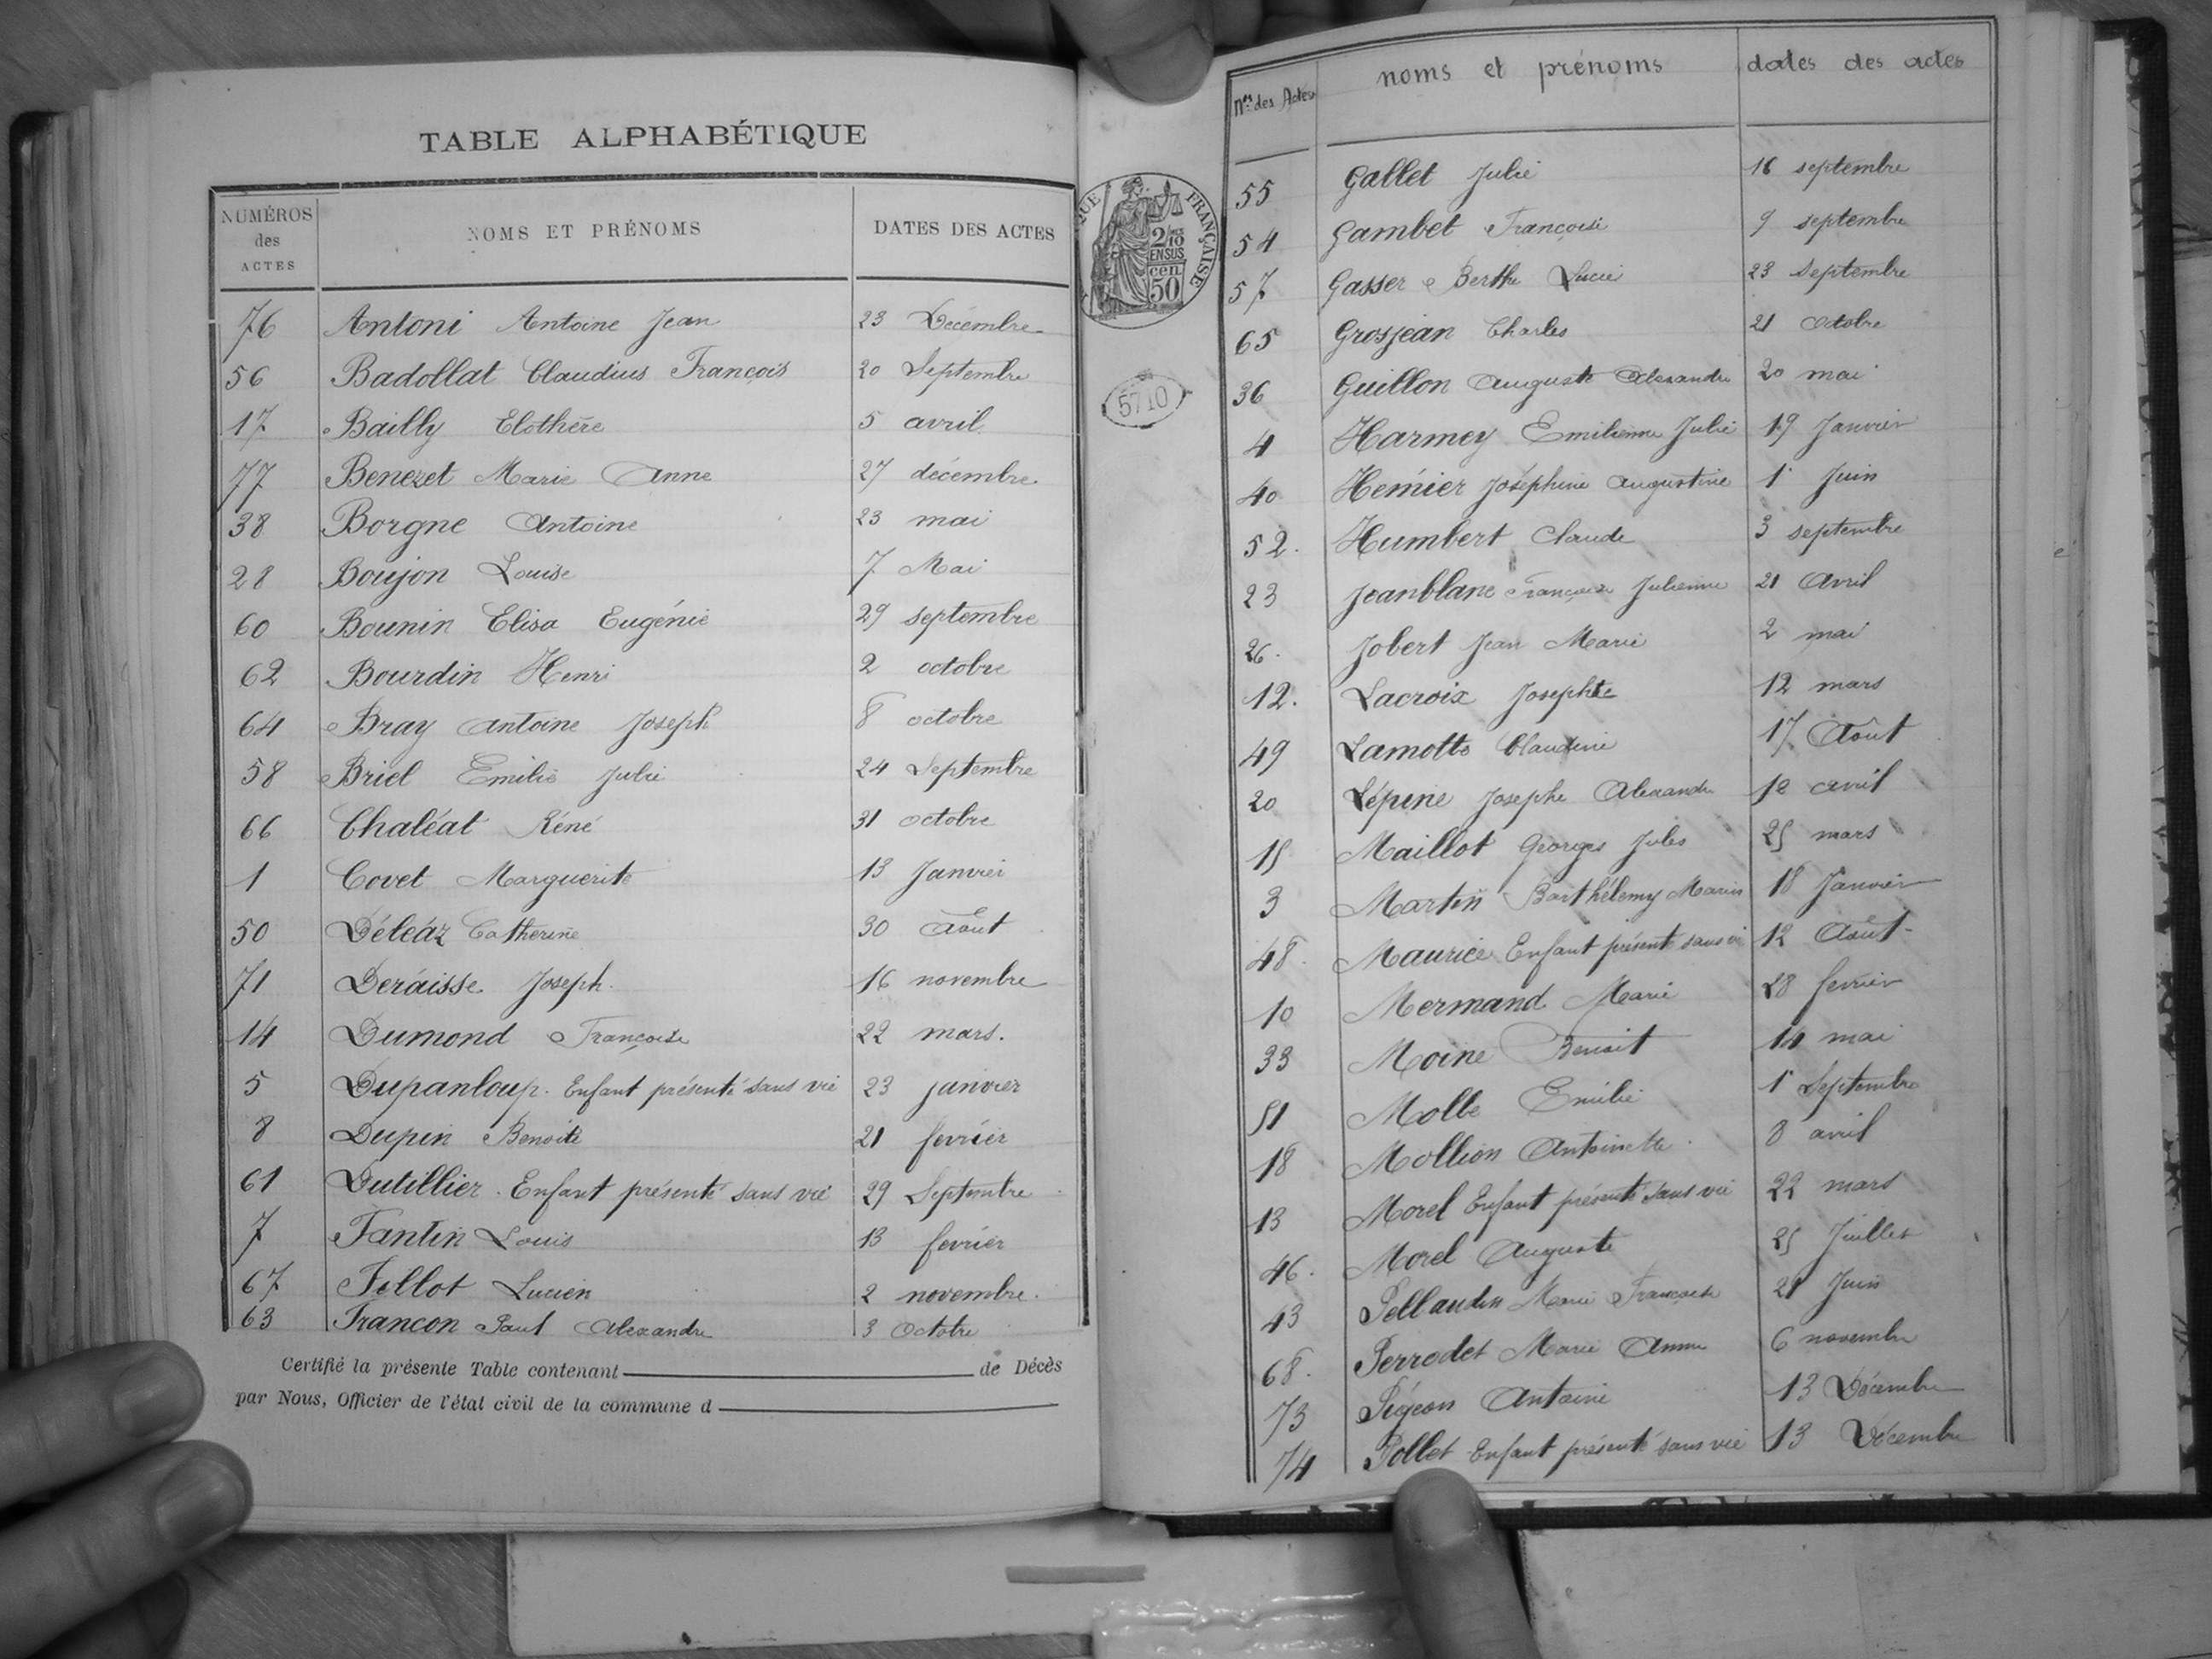 TABLE ALPHABÉTIQUE
NUMÉROS des ACTES NOMS ET PRÉNOMS DATES DES ACTES
76 Antoni Antoine Jean 23 Décembre
56 Badollat Claudius François 20 Septembre
17 Bailly Elothère 5 avril
77 Benezet Marie Anne 27 décembre
38 Borgne Antoine 23 mai
28 Boujon Louise 7 Mai
60 Bounin Elisa Eugénie 29 septembre
62 Bourdin Henri 2 octobre
64 Bray Antoine Joseph 8 octobre
58 Briel Emilie Julie 24 Septembre
66 Chaléat Réné 31 octobre
1 Covet Marguerite 13 Janvier
50 Déléaz Catherine 30 Août
71 Deráisse Joseph 16 novembre
14 Dumond Françoise 22 mars.
5 Dupanloup. Enfant présenté sans vie 23 janvier
8 Dupin Benoite 21 fevrier
61 Dutillier. Enfant présenté sans vie 29 Septembre
7 Fantin Louis 13 fevrier
67 Fillot Lucien 2 novembre.
63 Francon Paul Alexandre 3 Octobre
Certifié la présente Table contenant de Décès
par Nous, Officier de l'état civil de la commune d
QUE FRANÇAISE
2/10 EN SUS
50 cen
5710
Nos des Actes noms et prénoms dates des actes
55 Gallet Julie 16 septembre
54 Gambet Françoise 9 septembre
57 Gasser Berthe Lucie 23 Septembre
65 Grosjean Charles 21 octobre
36 Guillon Auguste Alexandre 20 mai
4 Harmey Emilienne Julie 19 Janvier
40 Hemier Joséphine Augustine 1 Juin
52. Humbert Claude 3 septembre
23 Jeanblanc Françoise Julienne 21 Avril
26. Jobert Jean Marie 2 mai
12. Lacroix Josephte 12 mars
49 Lamotte Claudine 17 Août
20 Lépine Josephe Alexandre avril
15 Maillot Georges Jules 25 mars
3 Martin Barthélemy Marin 18 Janvier
48. Maurice Enfant présenté sans vie 12 Août
10 Mermand Marie 28 fevrier
33 Moine Benoit 14 mai
51 Molle Emilie 1 Septembre
18 Mollion Antoinette 8 avril
13 Morel Enfant présenté sans vie 22 mars
46. Morel Auguste 25 Juillet
43 Pellaudin Marie Françoise 21 Juin
68. Perrodet Marie Anne 6 novembre
73 Pigeon Antoine 13 Décembre
74 Pollet Enfant présenté sans vie 13 Décembre